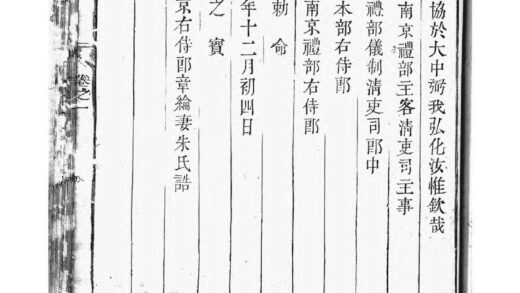 協於大中弼我弘化汝惟欽哉
南京禮部主客清吏司主事
禮部儀制清吏司郎中
右侍郎
南京禮部右侍郎
勅命
年十二月初四日
之寶
京右侍郎章綸妻朱氏誥
卷之一